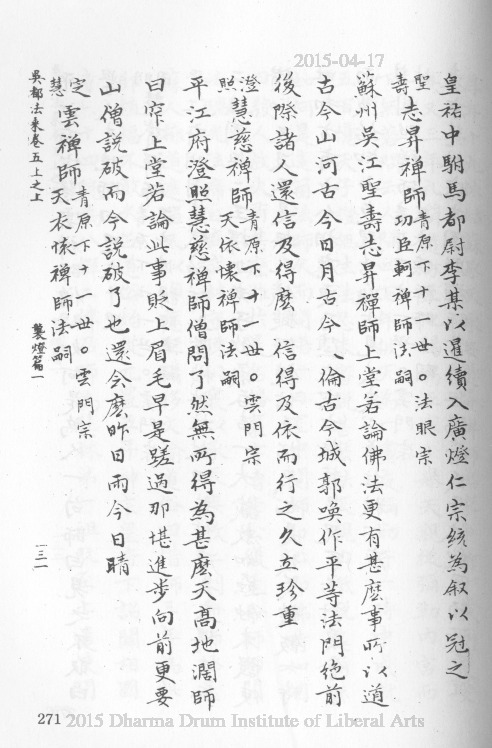 2015-04-17
皇祐中駙馬都尉李某以暹續入廣燈仁宗統為叙以冠之
聖壽志昇禪師 青原下十一世。法眼宗 功臣軻禪師法嗣
蘇州吳江聖壽志昇禪師上堂若論佛法更有甚麼事所以道
古今山河古今日月古今人倫古今城郭喚作平等法門絶前
後際諸人還信及得麼 信得及依而行之久立珍重
澄照慧慈禪師 青原下十一世。雲門宗 天依懷禪師法嗣
平江府澄照慧慈禪師僧問了然無所得為甚麼天高地濶師
曰窄上堂若論此事貶上眉毛早是蹉過那堪進步向前更要
山僧説破而今説破了也還会麼昨日雨今日晴
定慧雲禪師 青原下十一世。雲門宗 天衣懷禪師法嗣
吳都法乘卷五上之上 襲燈篇一 一三一
271 2015 Dharma Drum Institute of Liberal Arts